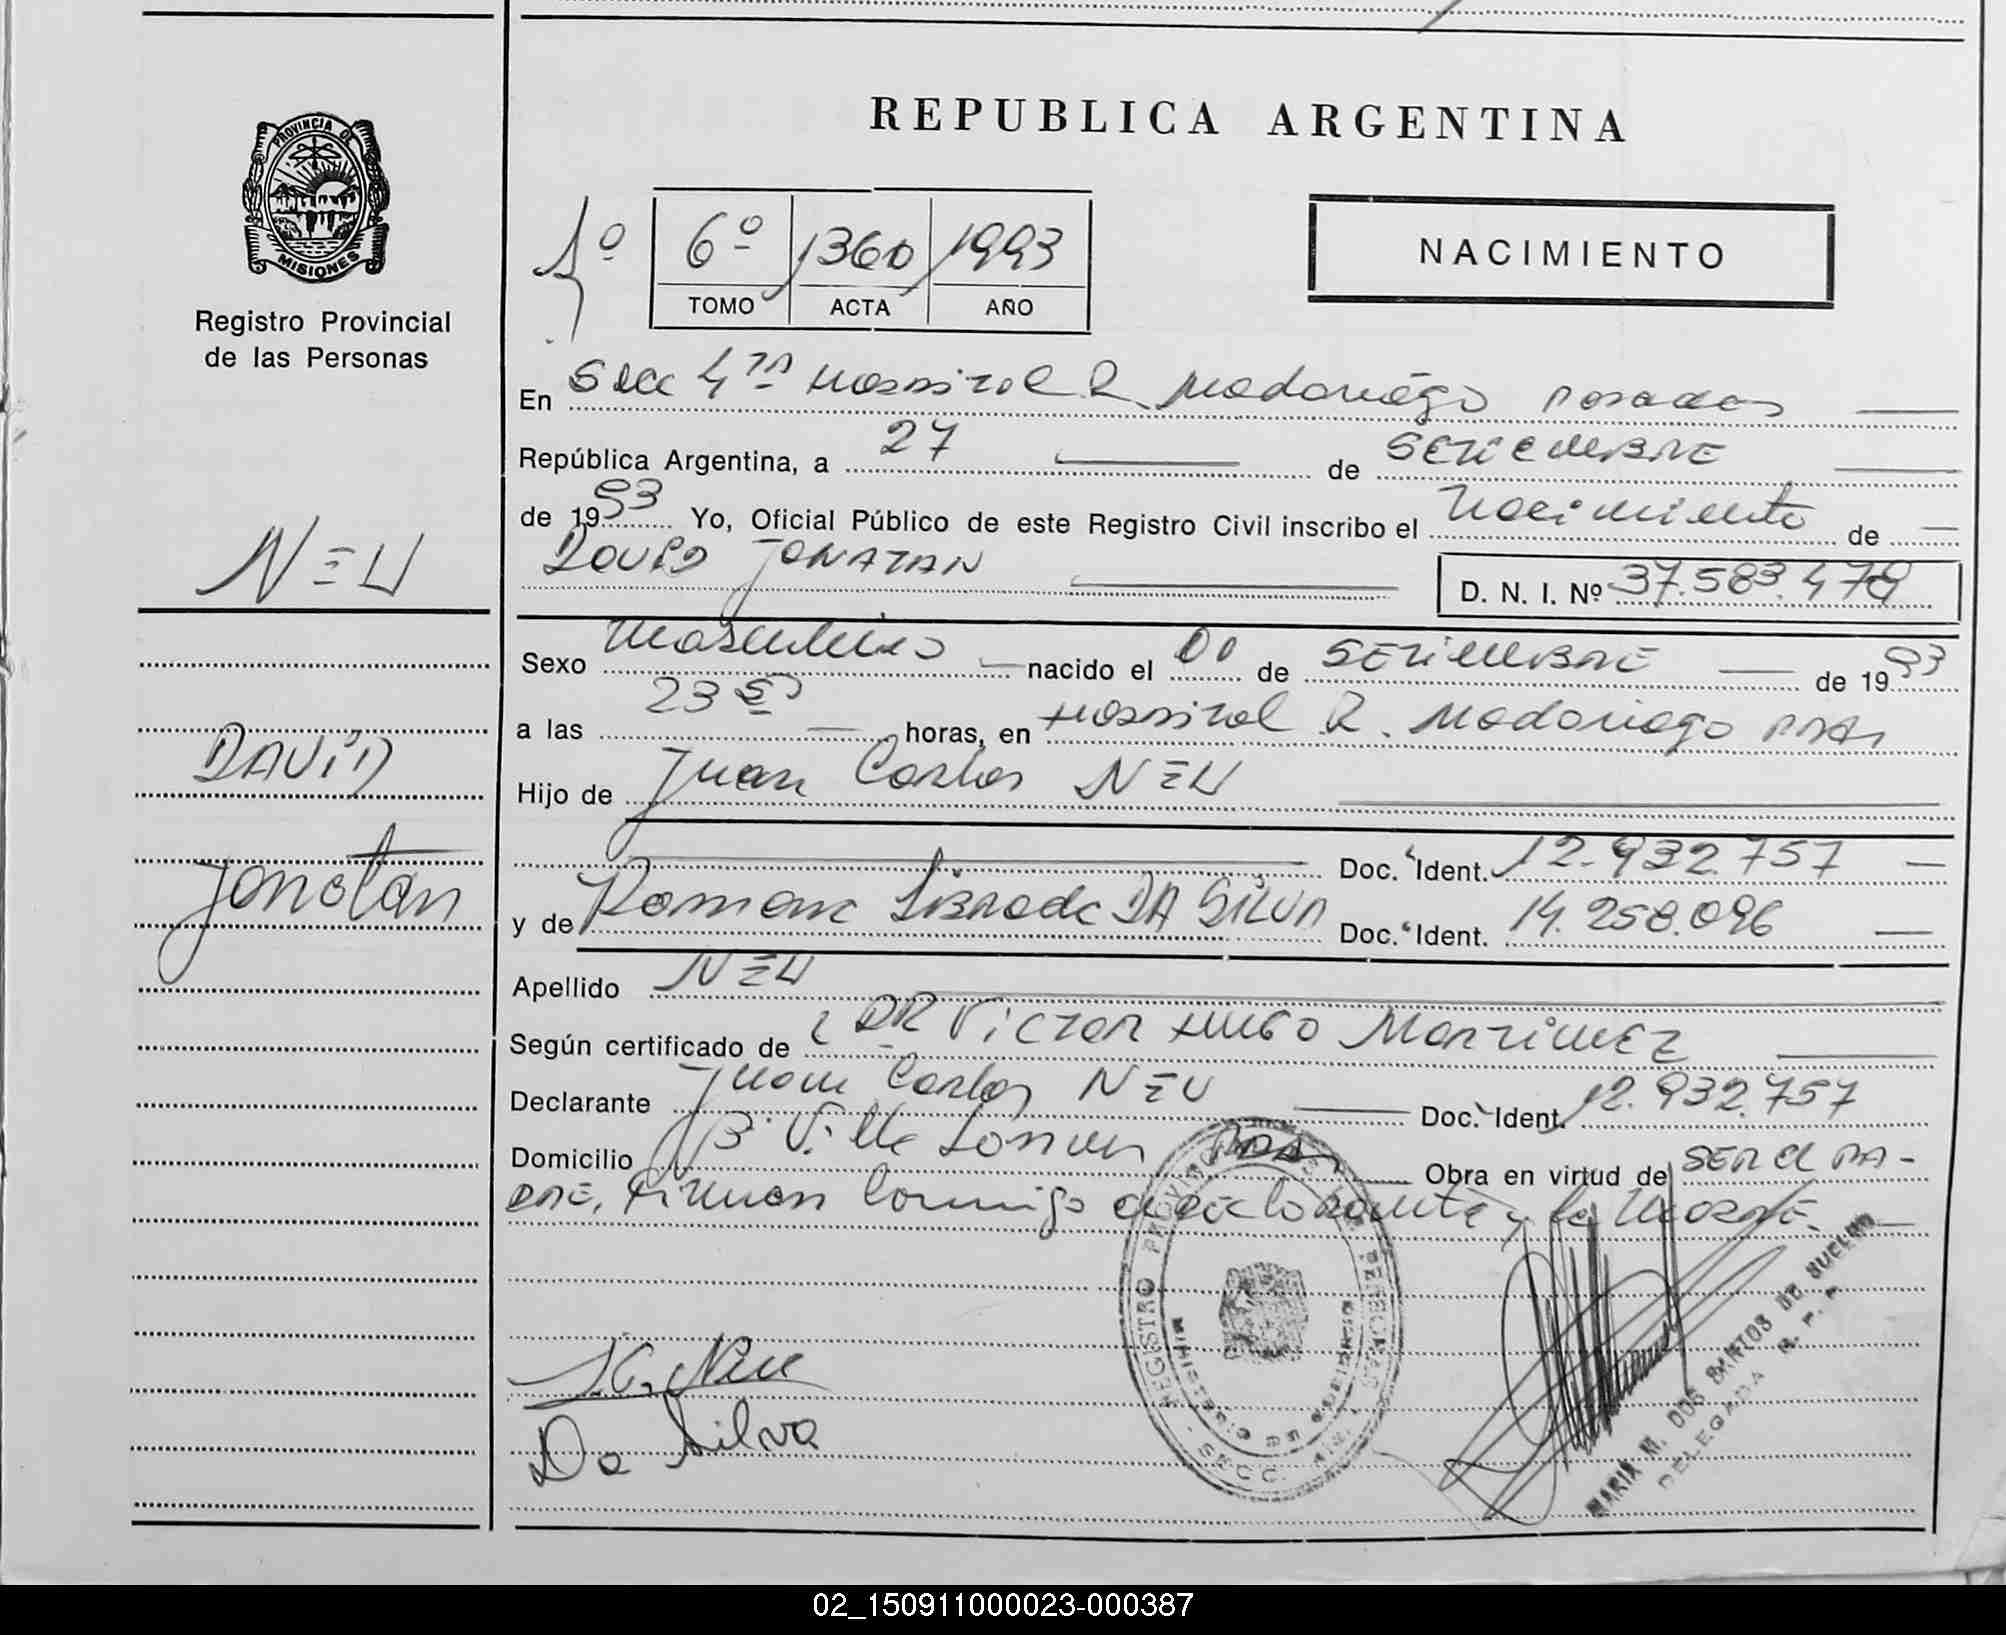 REPUBLICA ARGENTINA
PROVINCIA DE MISIONES
Registro Provincial
de las Personas
1º 6º 1360 1993
TOMO ACTA AÑO
NACIMIENTO
En Secc 4ta Hospital R. Madariaga Posadas
República Argentina, a 27 de SETIEMBRE
de 1993 Yo, Oficial Público de este Registro Civil inscribo el Nacimiento de
DAVID JONATAN D. N. I. Nº 37.583.478
NEU
Sexo Masculino nacido el de SETIEMBRE de 1993
a las 23 horas, en Hospital R. Madariaga Pdas
DAVID
Hijo de Juan Carlos NEU
Doc. Ident. 12.932.757
Jonatan
y de Ramona Librada DA SILVA Doc. Ident. 14.258.096
Apellido NEU
Según certificado de DR Victor Hugo Martinez
Declarante Juan Carlos NEU Doc. Ident. 12.932.757
Domicilio Bº Villa Pdas Obra en virtud de SER EL PA-
DRE, Firman conmigo el declarante y la Madre.
REGISTRO PROVINCIAL DE LAS PERSONAS
MINISTERIO DE GOBIERNO
SECC.
J.C. Neu
Da Silva
MARIA M. DOS SANTOS DE SUELDO
DELEGADA R. P. P.
02_150911000023-000387